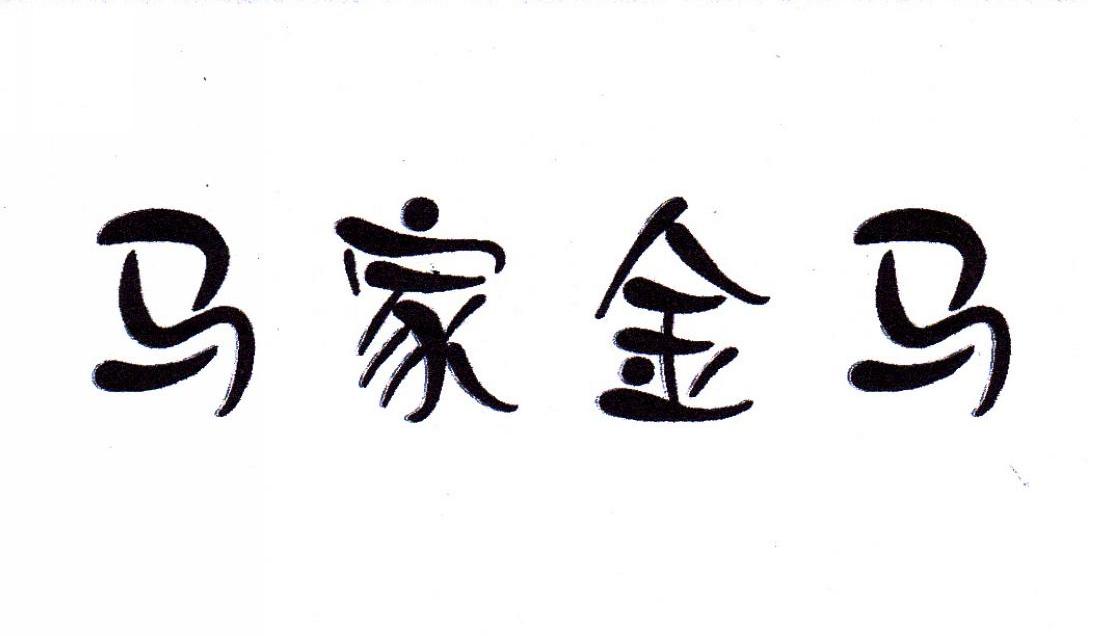 马家金马